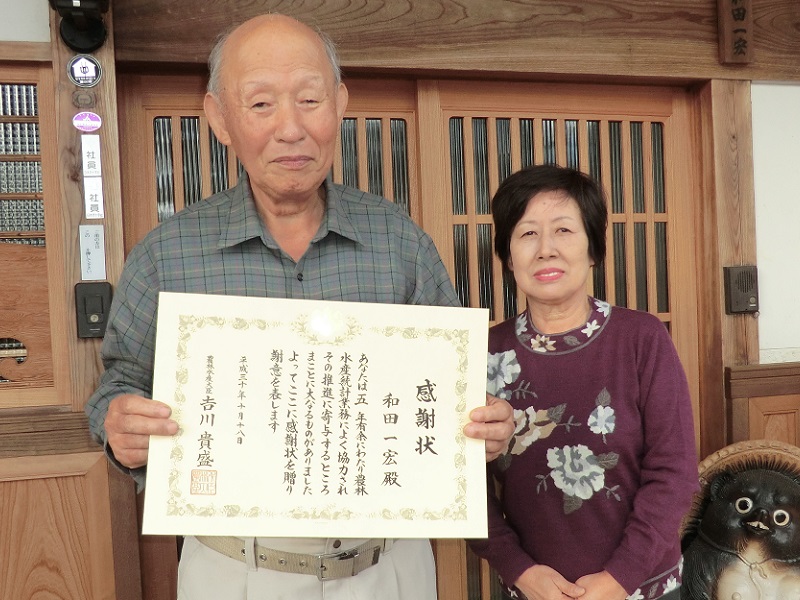 感謝状
和田一宏殿
あなたは五 年有余にわたり農林
水産統計業務によく協力され
その推進に寄与するところ
まことに大なるものがありました
よってここに感謝状を贈り
謝意を表します
平成三十年十月十八日
農林水産大臣 吉川貴盛
社員
社員
和田一宏